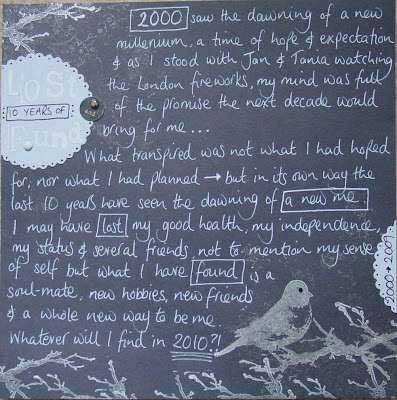 2000 saw the dawning of a new
millenium, a time of hope & expectation
& as I stood with Jan & Tania watching
the London fireworks, my mind was full
of the promise the next decade would
bring for me...
Lost
10 YEARS OF
Found
What transpired was not what I had hoped
for, nor what I had planned → but in its own way the
last 10 years have seen the dawning of a new me.
I may have lost my good health, my independence,
my status & several friends, not to mention my sense
of self but what I have found is a
soul-mate, new hobbies, new friends
& a whole new way to be me.
Whatever will I find in 2010?!
2000 → 2009